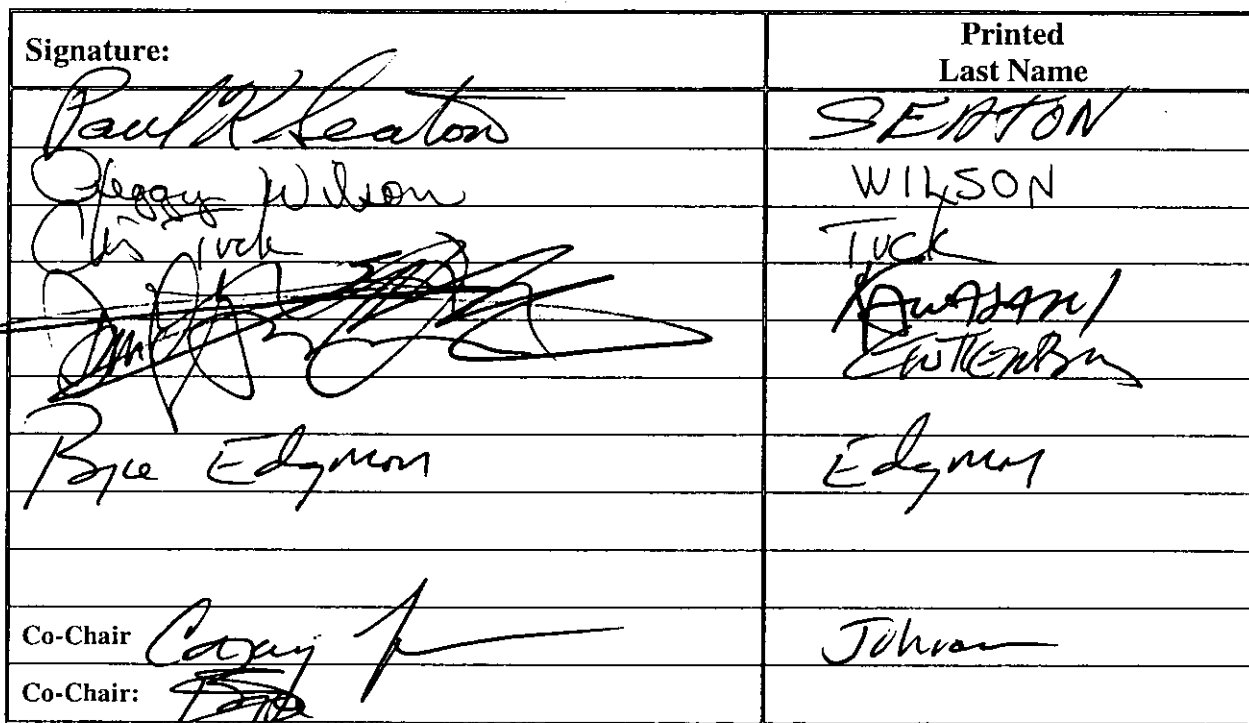 Signature: Printed
Last Name
Paul K Seaton SEATON
Peggy Wilson WILSON
Chris Tuck TUCK
KAWASAKI
Bryce Edgmon Edgmon
Co-Chair Craig Johnson
Co-Chair: